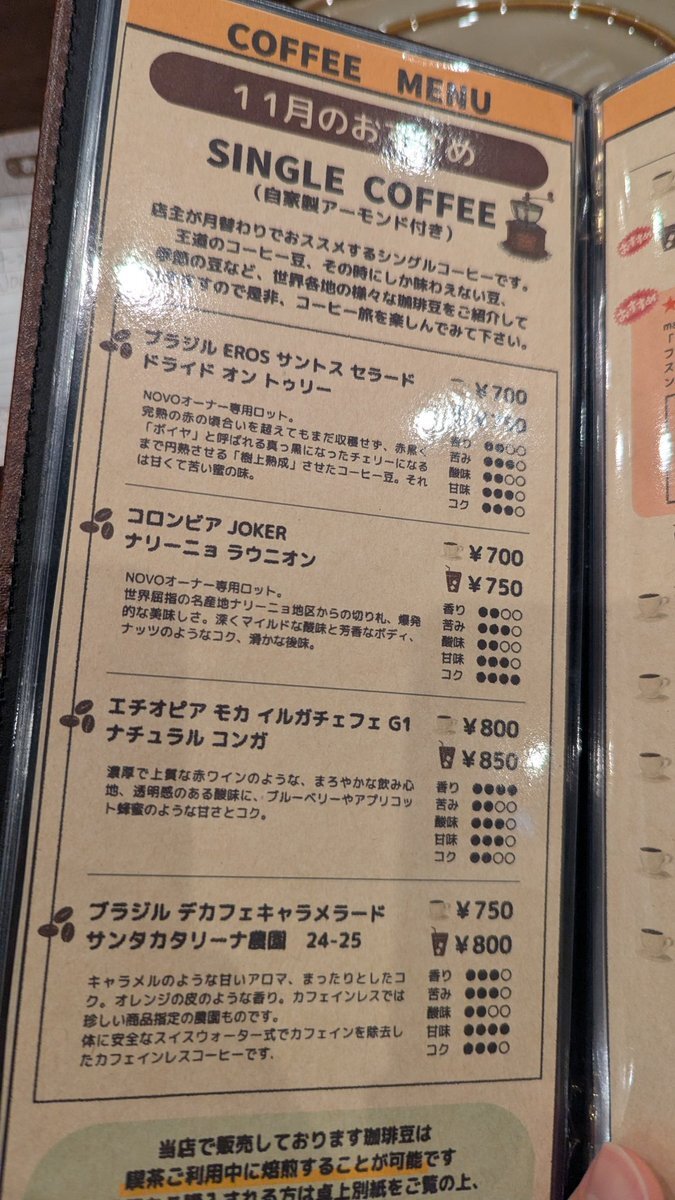 COFFEE MENU
11月のおすすめ
SINGLE COFFEE
(自家製アーモンド付き)
店主が月替わりでおススメするシングルコーヒーです。
王道のコーヒー豆、その時にしか味わえない豆、
季節の豆など、世界各地の様々な珈琲豆をご紹介して
いきますので是非、コーヒー旅を楽しんでみて下さい。
ブラジル EROS サントス セラード
ドライド オン トゥリー
¥700
NOVOオーナー専用ロット。
完熟の赤の頃合いを超えてもまだ収穫せず、赤黒く
「ボイヤ」と呼ばれる真っ黒になったチェリーになる
まで円熟させる「樹上熟成」させたコーヒー豆。それ
は甘くて苦い蜜の味。
香り ●●○○
苦み ●●●○
酸味 ●○○○
甘味 ●●●○
コク ●●●○
コロンビア JOKER
ナリーニョ ラウニオン
¥700
¥750
NOVOオーナー専用ロット。
世界屈指の名産地ナリーニョ地区からの切り札、爆発
的な美味しさ。深くマイルドな酸味と芳香なボディ、
ナッツのようなコク、滑かな後味。
香り ●●○○
苦み ●●●○
酸味 ●●○○
甘味 ●●●○
コク ●●●●
エチオピア モカ イルガチェフェ G1
ナチュラル コンガ
¥800
¥850
濃厚で上質な赤ワインのような、まろやかな飲み心
地、透明感のある酸味に、ブルーベリーやアプリコッ
ト蜂蜜のような甘さとコク。
香り ●●●●
苦み ●●○○
酸味 ●●●○
甘味 ●●●○
コク ●●○○
ブラジル デカフェキャラメラード
サンタカタリーナ農園 24-25
¥750
¥800
キャラメルのような甘いアロマ、まったりとしたコ
ク。オレンジの皮のような香り。カフェインレスでは
珍しい商品指定の農園ものです。
体に安全なスイスウォーター式でカフェインを除去し
たカフェインレスコーヒーです.
香り ●●●○
苦み ●●●○
酸味 ●●○○
甘味 ●●●●
コク ●●●○
当店で販売しております珈琲豆は
喫茶ご利用中に焙煎することが可能です
購入される方は卓上別紙をご覧の上、
おすすめ
おすすめ